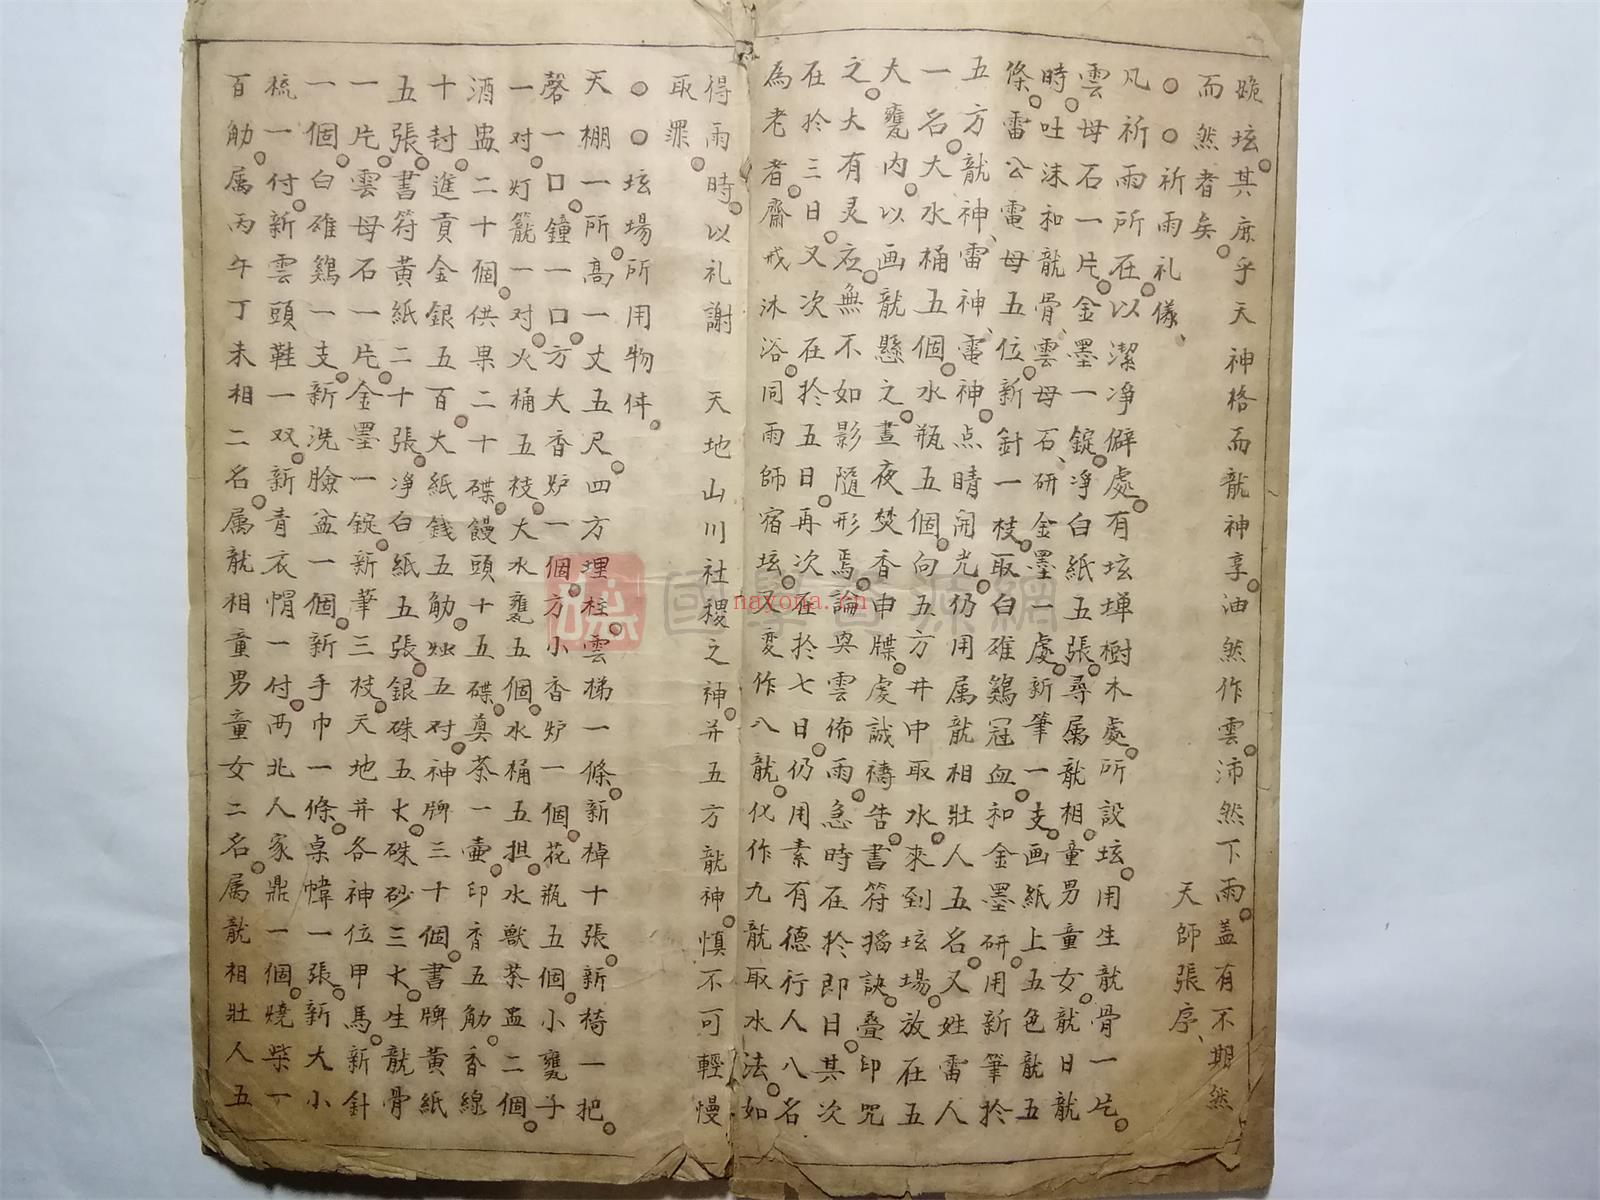 跪坛其庶乎天神格而龍神享油然作雲沛然下雨盖有不期然
而然者矣　天師張序
○○祈雨礼儀
凡祈雨所在以潔净僻處有坛墠樹木處所設坛用生龍骨一片
雲母石一片金墨一錠净白紙五張尋属龍相童男童女龍日龍
時吐沫和龍骨雲母石研金墨一處新筆一支画紙上五色龍五
條雷公電母五位新針一枝取白雄鷄冠血和金墨研用新筆於
五方龍神雷神電神点睛開光仍用属龍相壯人五名又姓雷人
一名大水桶五個水瓶五個向五方井中取水來到坛場放在五
大甕內以画龍懸之晝夜焚香申牒虔誠禱告書符搯訣叠印咒
之大有灵应無不如影隨形焉論與雲佈雨急時在於即日其次
在於三日又次在於五日再次在於七日仍用素有德行人八名
為老者齋戒沐浴同雨師宿坛又变作八龍化作九龍取水法如
得雨時以礼謝　天地山川社稷之神并五方龍神慎不可輕慢
取罪
○○坛場所用物件
天棚一所高一丈五尺四方埋柱雲梯一條新棹十張新椅一把
磬一口鐘一口方大香炉一個方小香炉一個花瓶五個小甕子
一对灯籠一对火桶五枝大水甕五個水桶五担水獸茶盅二個
酒盅二十個供果二十碟饅頭十五碟奠茶一壷印香五觔香線
十封進貢金銀五百大紙錢五觔烛五对神牌三十個書牌黄紙
五張書符黄紙二十張净白紙五張銀硃五大硃砂三大生龍骨
一片雲母石一片金墨一錠新筆三枝天地并各神位甲馬新針
一個白雄鷄一支新洗臉盆一個新手巾一條桌幃一張新大小
梳一付新雲頭鞋一双新青衣㡌一付两北人家鼎一個燒柴一
百觔属丙午丁未相二名属龍相童男童女二名属龍相壯人五
國學
nayona.cn